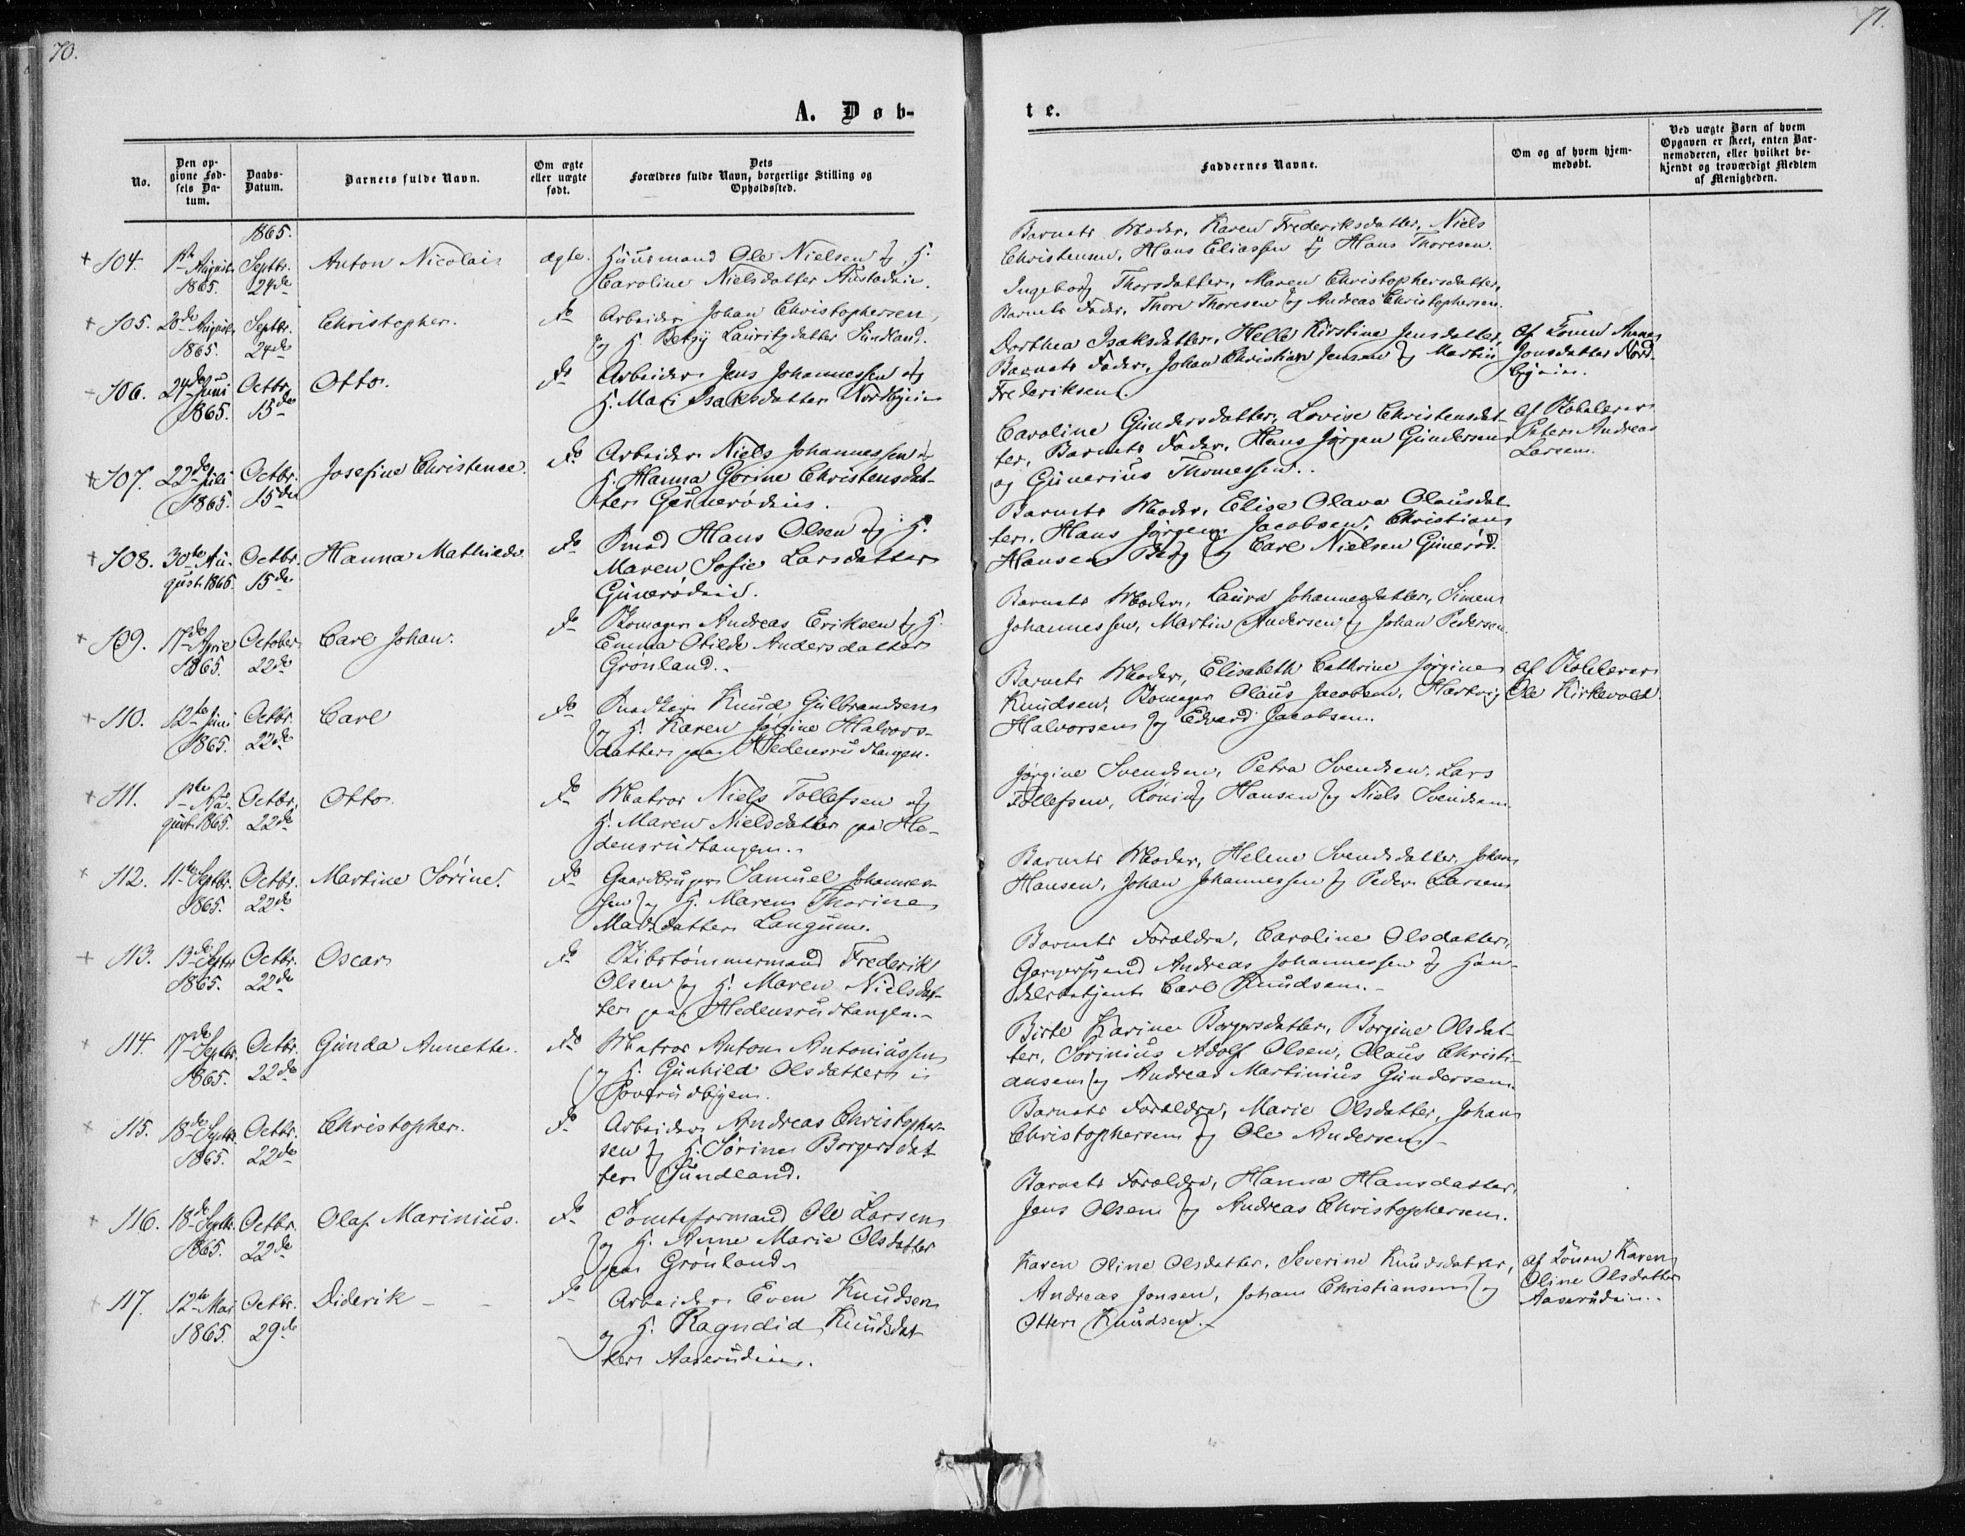 70.
71.
A. Døb-
te.
No.
Den op-
givne Fød-
sels Da-
tum.
Daabs-
Datum.
Barnets fulde Navn.
Om ægte
eller uægte
født.
Dets
Forældres fulde Navn, borgerlige Stilling og
Opholdssted.
Faddernes Navne.
Om og af hvem hjem-
medøbt.
Ved uægte Børn af hvem
Opgaven er skeet, enten Bar-
nemoderen, eller hvilket be-
kjendt og troværdigt Medlem
af Menigheden.
1865.
104. 1ste August 1865. Septbr. 24de Anton Nicolai ægte. Huusmand Ole Nielsen og H.
Caroline Nielsdatter
Barnets Moder, Karen Frederiksdatter, Niels
Christensen, Hans Eliassen og Hans Thoresen.
105. 28de August 1865. Septbr. 24de Christopher. do Arbeider Johan Christophersen,
og H. Betsy Lauritzdatter Sundland.
Ingeborg Thorsdatter, Maren Christophersdatter,
Barnets Fader, Thore Thoresen og Andreas Christophersen.
106. 24de Juni 1865. Octbr. 15de Otto. do Arbeider Jens Johannessen og
H. Mari Isaksdatter Nordbyeie
Dorthea Isaksdatter, Helle Kirstine Jensdatter,
Barnets Fader, Johan Christian Jensen og Martin
Frederiksen.
af Konen Anne
Jonsdatter Nord-
byeie.
107. 22de Juli 1865. Octbr. 15de Josefine Christense. do Arbeider Niels Johannessen og
H. Hanna Gorine Christensdat-
ter Gunerødeie.
Caroline Gundersdatter, Lovise Christensdat-
ter, Barnets Fader, Hans Jørgen Gundersen
og Gunerius Thomessen.
af Skolelærer
Peter Andreas
Larsen.
108. 30te Au-
gust 1865. Octbr. 15de Hanna Mathilde do Smed Hans Olsen og H.
Maren Sofie Larsdatter
Gunerødeie.
Barnets Moder, Elise Olava Olausdat-
ter, Hans Jørgen Jacobsen, Christian
Hansen Berg og Carl Nielsen Gunerød.
109. 17de April 1865. October 22de Carl Johan. do Skomager Andreas Eriksen og H.
Emma Otilde Andersdatter
Grønland.
Barnets Moder, Laura Johannesdatter, Simen
Johannessen, Martin Andersen og Johan Pedersen.
110. 12te Juni 1865. Octbr. 22de Carl do Snedker Knud Gulbrandsen
og H. Karen Jørgine Halvors-
datter paa Hedensrudtangen.
Barnets Moder, Elisabeth Cathrine Jørgine
Knudsen, Skomager Olaus Jacobsen, Hartvig
Halvorsen og Edvard Jacobsen.
af Skolelærer
Ole Kirkevold
111. 1ste Au-
gust 1865. Octbr. 22de Otto. do Matros Niels Tollefsen og
H. Maren Nielsdatter paa He-
densrudtangen.
Jørgine Svendsen, Petra Svendsen, Lars
Tollefsen, Rønnig Hansen og Niels Svendsen
112. 11te Septbr. 1865. Octbr. 22de Martine Sørine. do Gaardbruger Samuel Johannes-
sen og H. Maren Thorine
Madsdatter Langum.
Barnets Moder, Helene Svendsdatter, Johan
Hansen, Johan Johannessen og Peder Larsen
113. 13de Septbr 1865. Octbr. 22de Oscar do Skibstømmermand Frederik
Olsen og H. Maren Nielsdat-
ter paa Hedensrudtangen.
Barnets Forældre, Caroline Olsdatter,
Garversvend Andreas Johannessen og Han-
delsbetjent Carl Knudsen.
114. 17de Septbr. 1865. Octbr. 22de Gunda Annette. do Matros Anton Antoniussen
og H. Gunhild Olsdatter i
Birte Karine Borgersdatter, Borgine Olsdat-
ter, Sorinius Adolf Olsen, Olaus Christi-
ansen og Andreas Martinius Gundersen.
115. 18de Septbr. 1865. Octbr. 22de Christopher. do Arbeider Andreas Christopher-
sen og H. Sørine Borgersdat-
ter Sundland.
Barnets Forældre, Marie Olsdatter, Johan
Christophersen og Ole Andersen
116. 18de Septbr. 1865. Octbr. 22de Olaf Marinius. do Tomteformand Ole Larsen
og H. Anne Marie Olsdatter
paa Grønland
Barnets Forældre, Hanna Hansdatter,
Jens Olsen og Andreas Christophersen.
117. 12te Mai 1865. Octbr. 29de Diderik do Arbeider Even Knudsen
og H. Ragndid Knudsdat-
ter Aaserudeie.
Karen Oline Olsdatter, Severine Knudsdatter,
Andreas Jonsen, Johan Christiansen og
Otter Knudsen.
af Konen Karen
Oline Olsdatter
Aaserudeie.